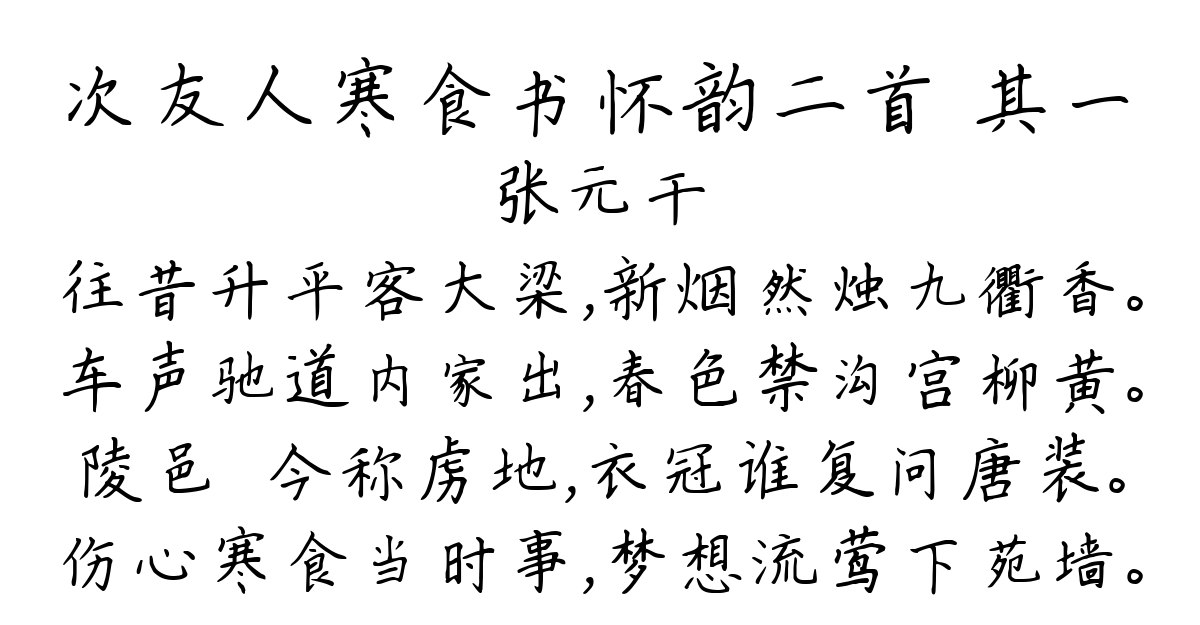 次友人寒食书怀韵二首 其一
张元干
往昔升平客大梁,新烟然烛九衢香。
车声驰道内家出,春色禁沟宫柳黄。
陵邑 今称虏地,衣冠谁复问唐装。
伤心寒食当时事,梦想流莺下苑墙。